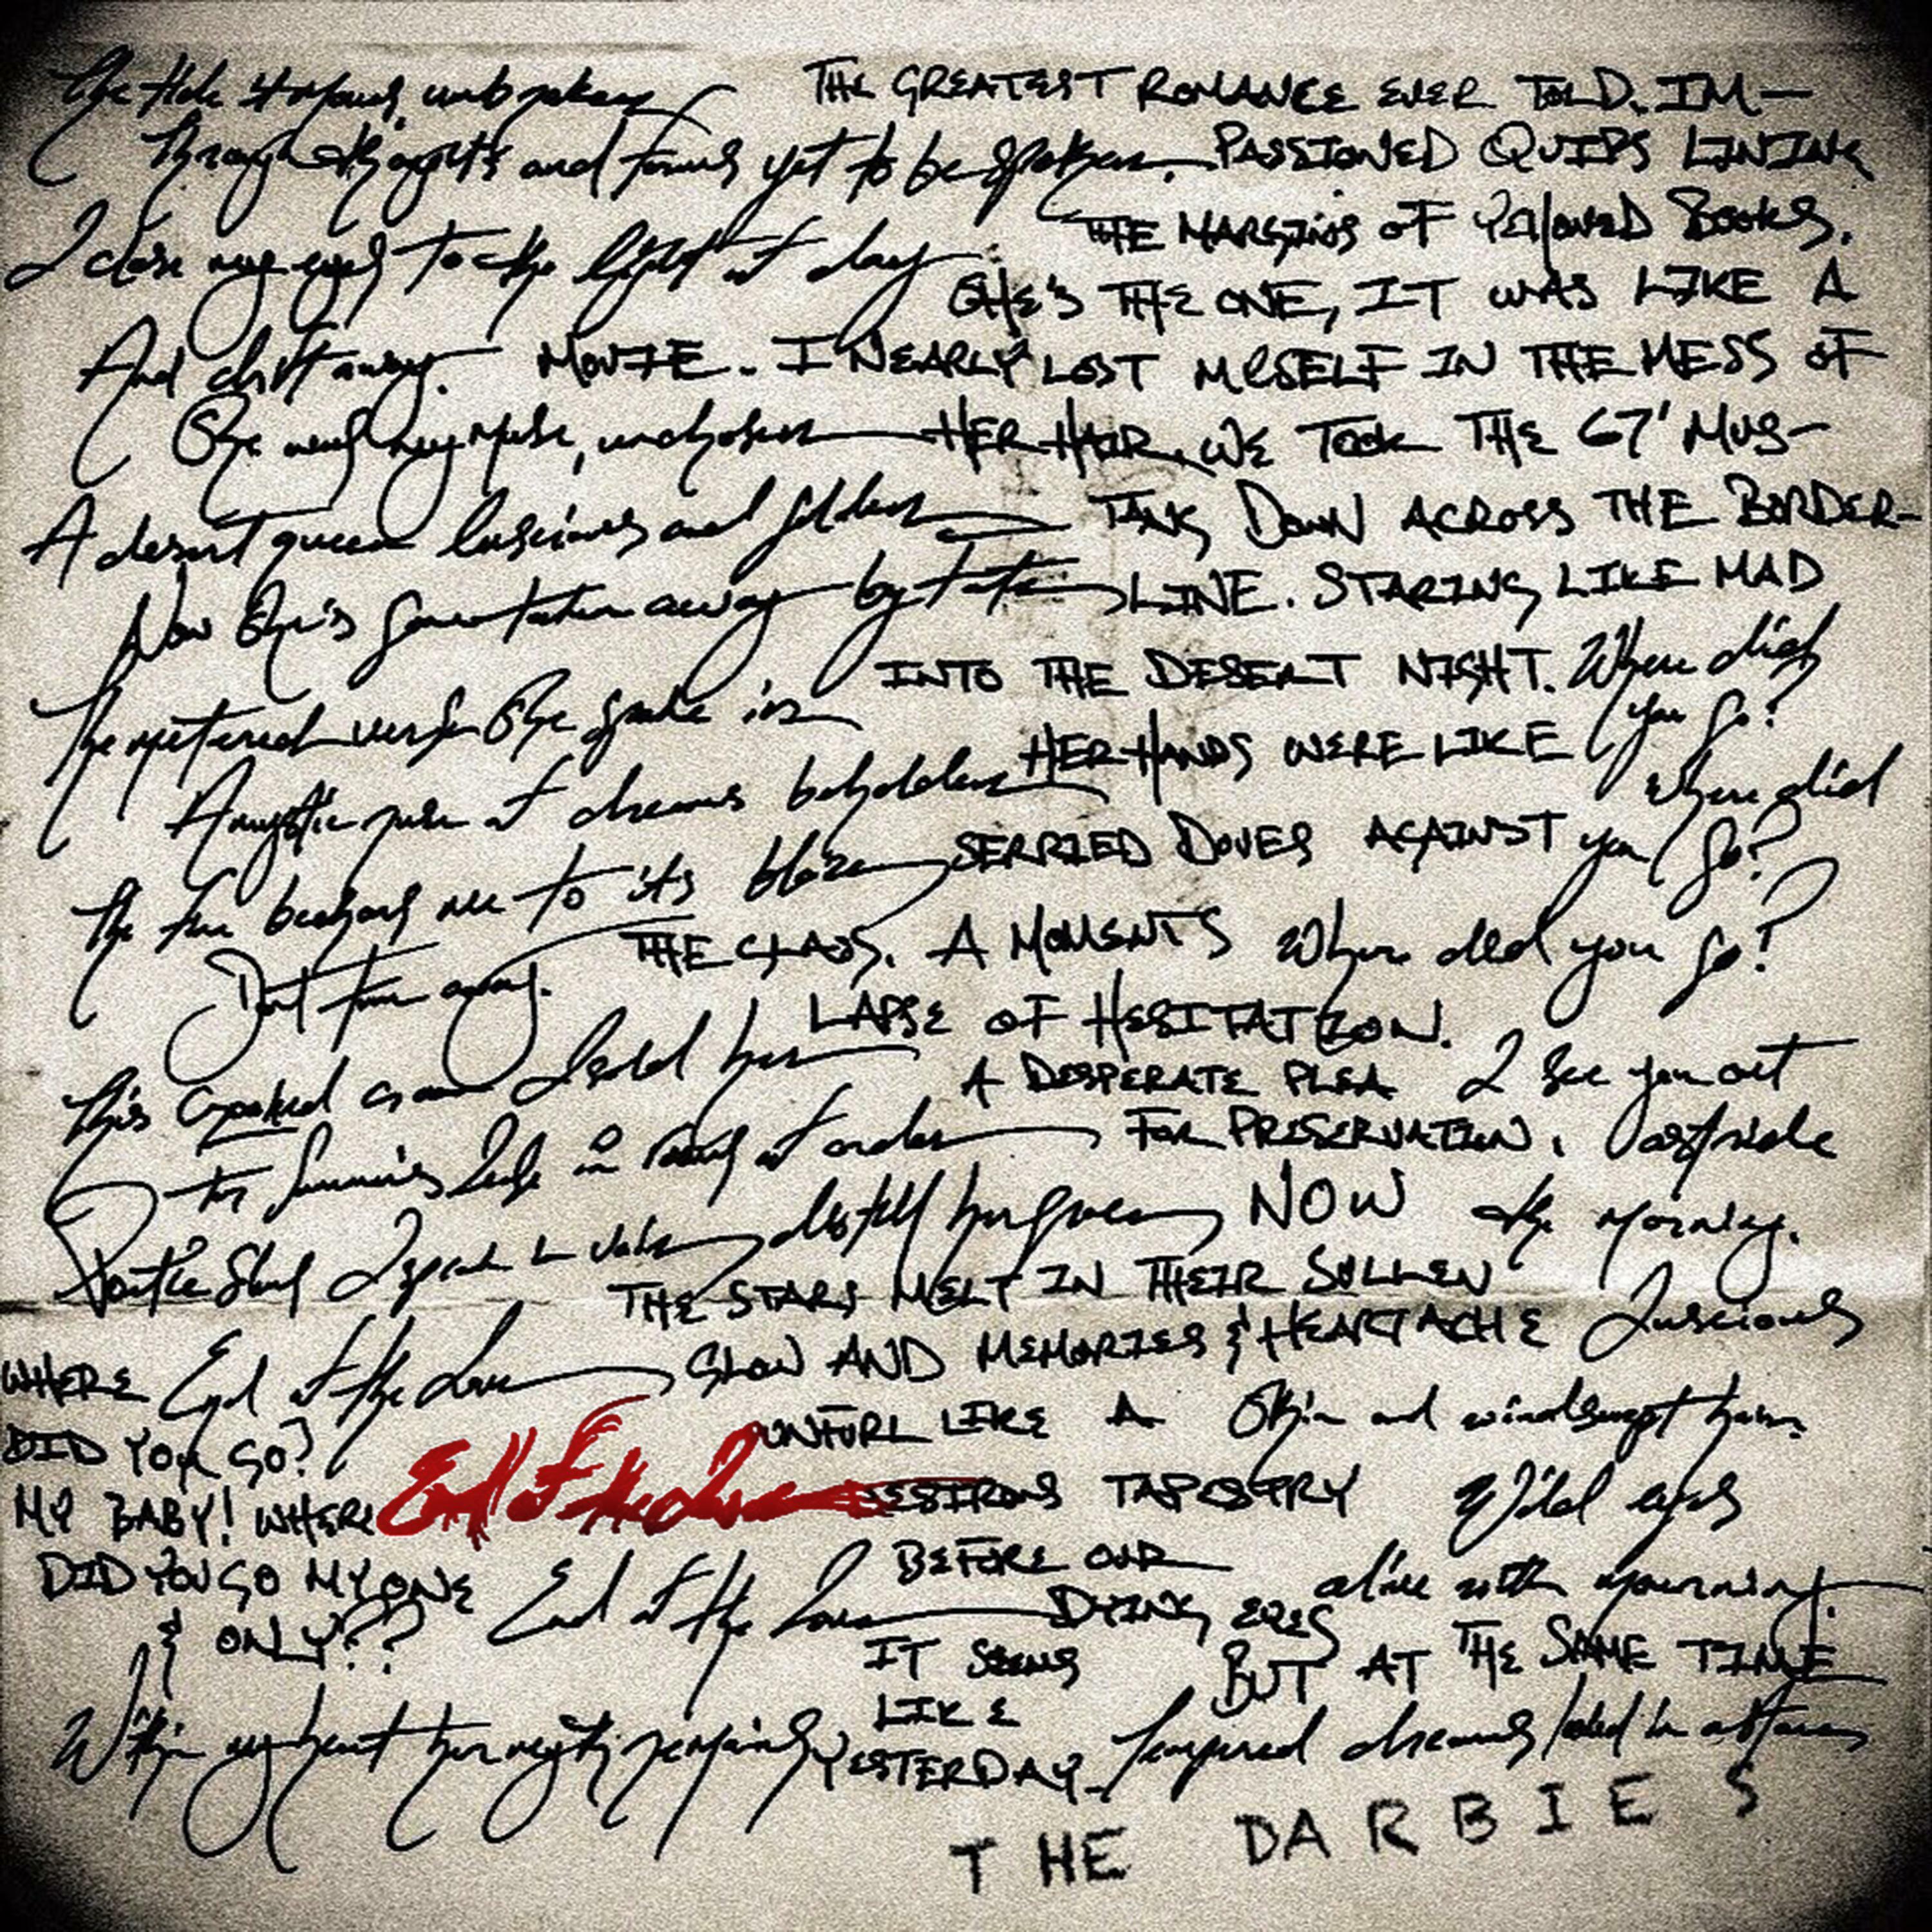 The tide strays, unbroken
Through thoughts and forms yet to be spoken.
I close my eyes to the light of day
And drift away.
She was my muse, unchosen
A desert queen luscious and golden
Now she's gone taken away by fate
The metered verse she spoke in
A mystic of dreams beholden
The fire beckons me to its blaze
Don't turn away.
This crooked crown I sold her
For summers lost in of order
Poetic I speak in distill
End of the Love
End of the Love
End of the Love
Within my heart her remains
THE GREATEST ROMANCE EVER TOLD. IM-
PASSIONED QUIPS LINING
THE MARGINS OF YELLOWED BOOKS.
SHE'S THE ONE, IT WAS LIKE A
MOVIE. I NEARLY LOST MYSELF IN THE MESS OF
HER HAIR. WE TOOK THE 67' MUS-
TANG DOWN ACROSS THE BORDER-
LINE. STARING LIKE MAD
INTO THE DESERT NIGHT.
HER HANDS WERE LIKE
SERRIED DOVES AGAINST
THE GLASS. A MOMENT'S
LAPSE OF HESITATION.
A DESPERATE PLEA
FOR PRESERVATION.
NOW
THE STARS MELT IN THEIR SULLEN
GLOW AND MEMORIES & HEARTACHE
UNFURL LIKE A
TAPESTRY
BEFORE OUR
DYING EYES
IT SEEMS
LIKE
YESTERDAY
BUT AT THE SAME TIME
Where did
you go?
Where did
you go?
Where did you go?
I see you out
astride
the morning.
Luscious
skin and windswept hair
Wild eyes
alive with mourning.
Tempered dreams
WHERE
DID YOU GO?
MY BABY! WHERE
DID YOU GO MY ONE
& ONLY??
THE DARBIES